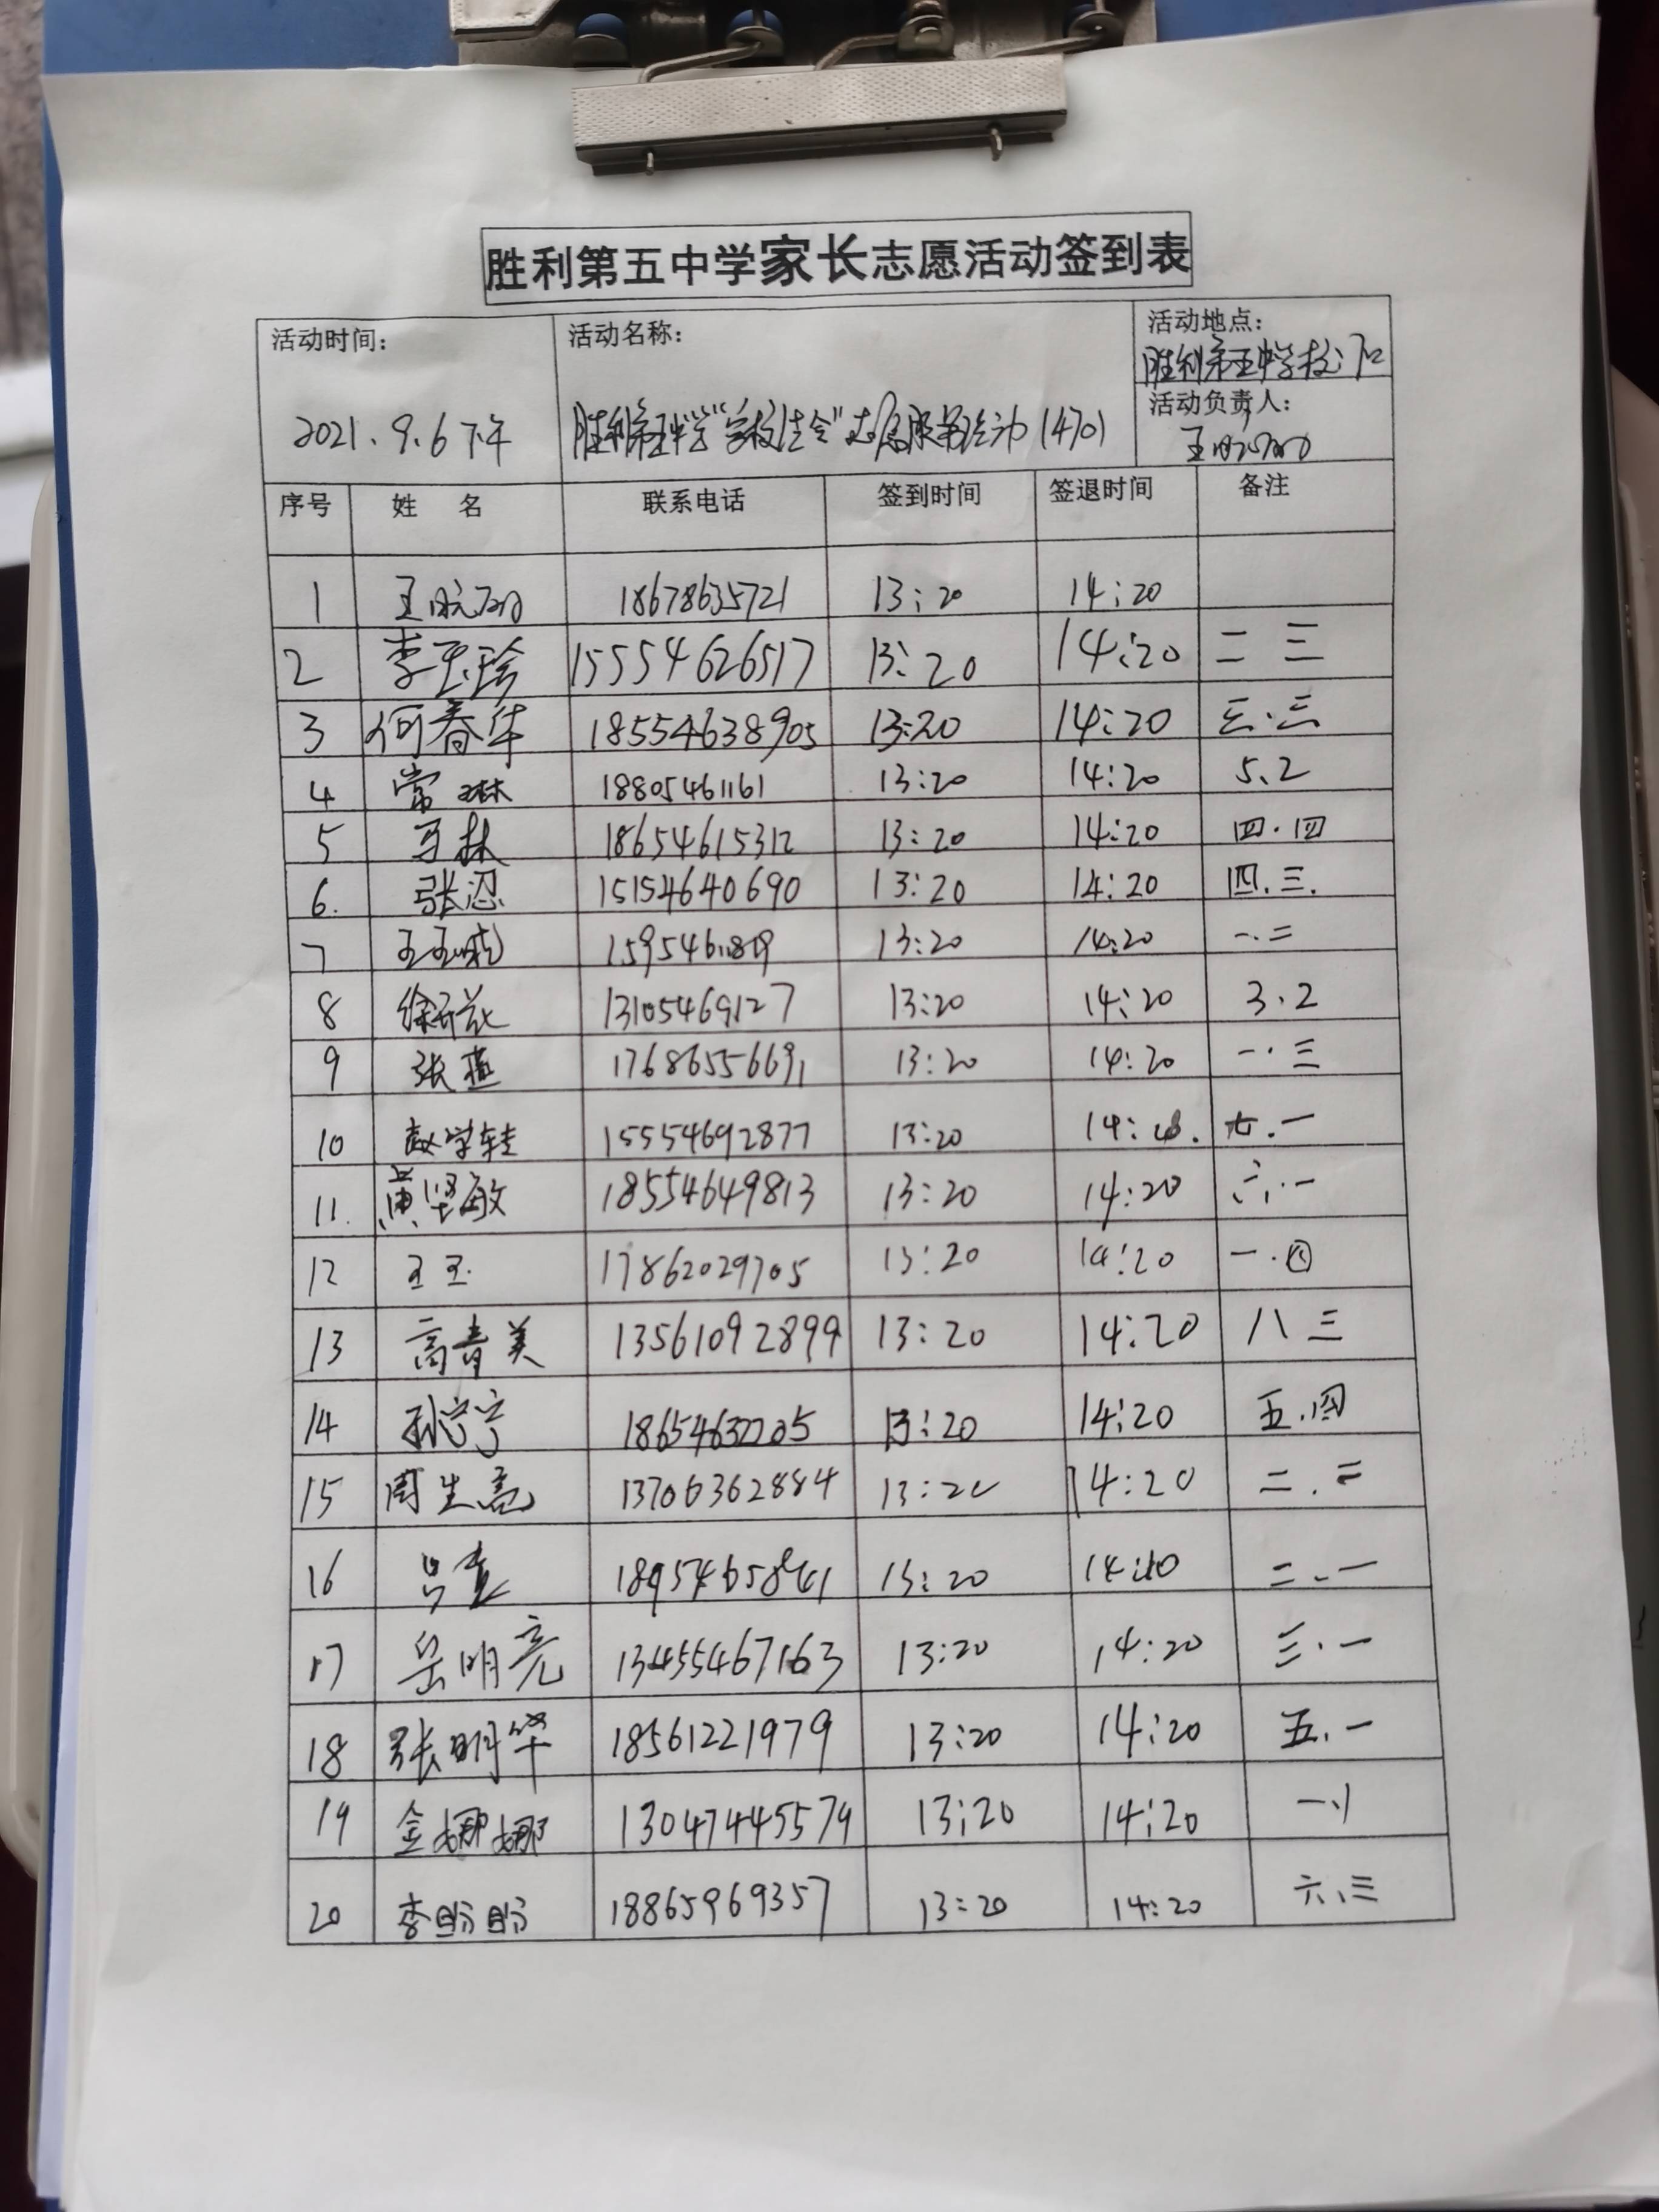 胜利第五中学家长志愿活动签到表
活动时间： 活动名称： 活动地点：
胜利第五中学校门口
活动负责人：
2021.9.6下午 胜利第五中学"学校佳会"志愿服务活动(470)
序号 姓 名 联系电话 签到时间 签退时间 备注
1 18678635721 13:20 14:20
2 李玉珍 15554626517 13:20 14:20 二 三
3 何春华 18554638905 13:20 14:20 三.三
4 常琳 18805461161 13:20 14:20 5.2
5 马林 18654615312 13:20 14:20 四.四
6. 张忍 15154640690 13:20 14:20 四.三.
7 13:20 14:20 一.二
8 13105469127 13:20 14:20 3.2
9 张 17686556691 13:20 14:20 一.三
10 赵学 15554692877 13:20 14: 七.一
11. 黄坚敏 18554649813 13:20 14:20 六.一
12 王玉 17862029705 13:20 14:20 一.四
13 高青美 13561092899 13:20 14:20 八 三
14 孙宁宁 18654632205 13:20 14:20 五.四
15 周生亮 13706362884 13:20 14:20 二.二
16 吕 13:20 二、一
17 岳明亮 13455467163 13:20 14:20 三.一
18 张明华 18561221979 13:20 14:20 五.一
19 金娜娜 13047445579 13:20 14:20 一、1
20 李盼盼 18865969357 13:20 14:20 六、三